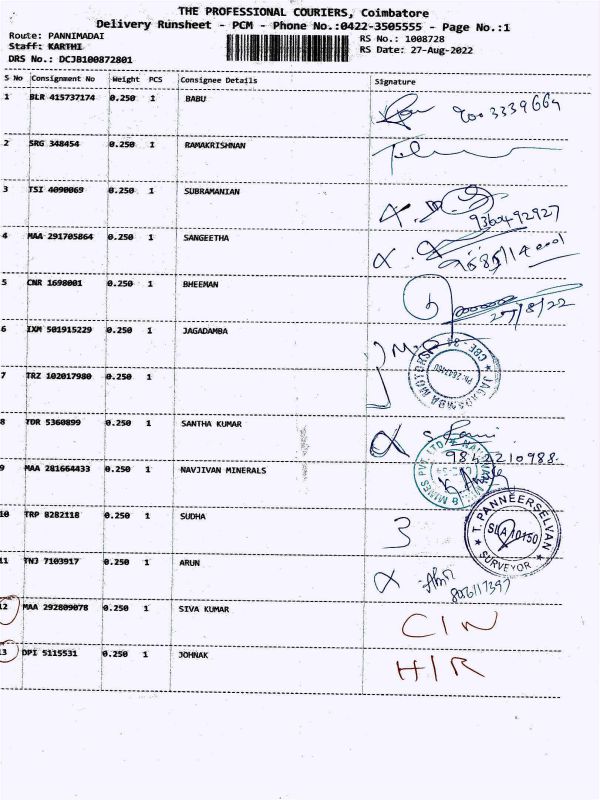 THE PROFESSIONAL COURIERS, Coimbatore
Delivery Runsheet - PCM - Phone No.:0422-3505555 - Page No.:1
Route: PANNIMADAI RS No.: 1008728
Staff: KARTHI RS Date: 27-Aug-2022
DRS No.: DCJB100872801
S No Consignment No Weight PCS Consignee Details Signature
1 BLR 415737174 0.250 1 BABU 9003339664
2 SRG 348454 0.250 1 RAMAKRISHNAN
3 TSI 4090069 0.250 1 SUBRAMANIAN
9360492927
4 MAA 291705864 0.250 1 SANGEETHA
5 CNR 1698001 0.250 1 BHEEMAN
27/8/22
6 IXM 501915229 0.250 1 JAGADAMBA
JAGADAMBA MOTORS CBE - 34
7 TRZ 102017980 0.250 1
8 TDR 5360899 0.250 1 SANTHA KUMAR
9842210988
9 MAA 281664433 0.250 1 NAVJIVAN MINERALS
10 TRP 8282118 0.250 1 SUDHA 3
T. PANNEERSELVAN
SLA 10150
SURVEYOR
11 TNJ 7103917 0.250 1 ARUN
12 MAA 292809078 0.250 1 SIVA KUMAR C/N
13 DPI 5115531 0.250 1 JOHNAK H/R